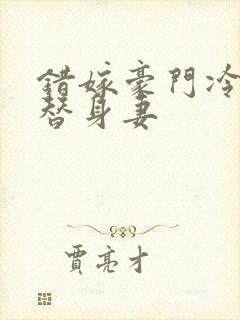 錯嫁豪門冷
替身妻
賈亮才